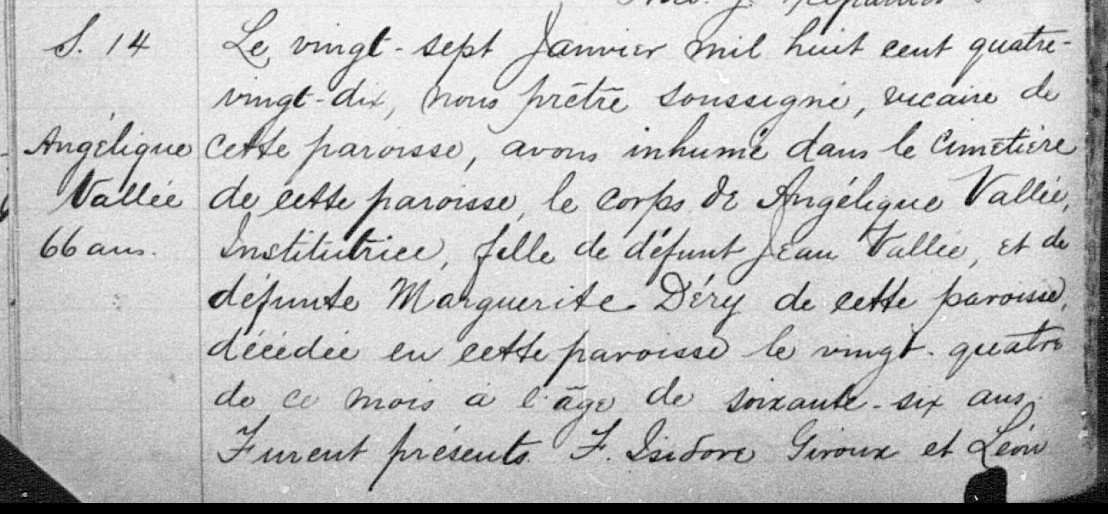 S. 14
Le vingt-sept Janvier mil huit cent quatre-
vingt-dix, nous prêtre soussigné, vicaire de
Angélique
cette paroisse, avons inhumé dans le cimetière
Vallée
de cette paroisse, le corps de Angélique Vallée,
66 ans.
Institutrice, fille de défunt Jean Vallée, et de
défunte Marguerite Déry de cette paroisse,
décédée en cette paroisse le vingt-quatre
de ce mois a l'âge de soixante-six ans.
Furent présents F. Isidore Giroux et Léon